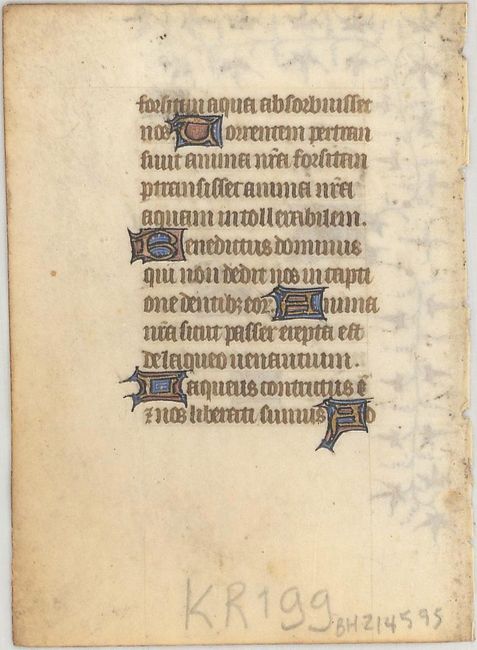 forsitan aqua absorbuisset
nos Torrentem pertran
sivit anima nr̄a forsitan
ꝑtransisset anima nr̄a
aquam intollerabilem.
Benedictus dominus
qui non dedit nos in capti
one dentibꝫ eoꝝ Anima
nr̄a sicut passer erepta est
de laqueo uenantium.
Laqueus contritus ē
⁊ nos liberati sumus Ad
KR199
BHZ14595